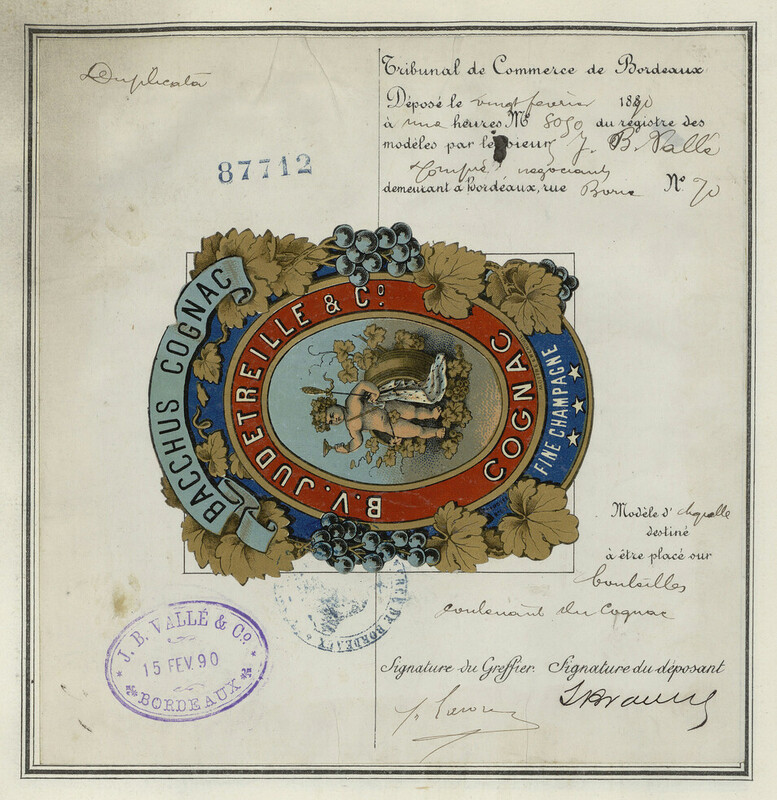 Duplicata
87712
Tribunal de Commerce de Bordeaux
Déposé le vingt fevrier 1890
à une heures N° 8090 du régistre des
modèles par le Sieur J. B. Vallé
négociant
demeurant à Bordeaux, rue Borie N° 70
BACCHUS COGNAC
B.V. JUDETREILLE & Co.
COGNAC
FINE CHAMPAGNE
Modèle d'
destiné
à être placé sur
bouteilles
contenant du Cognac
DE BORDEAUX
J. B. VALLÉ & Co.
15 FEV. 90
BORDEAUX
Signature du Greffier. Signature du déposant